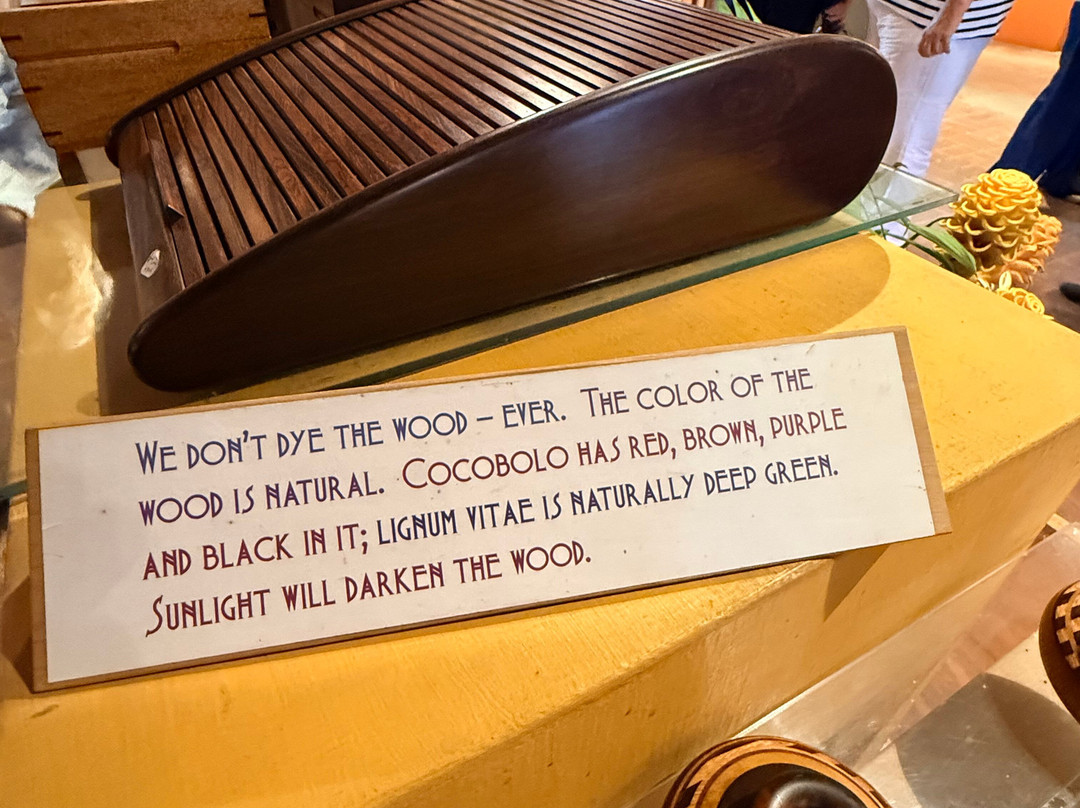 We don't dye the wood – ever. The color of the
wood is natural. Cocobolo has red, brown, purple
and black in it; lignum vitae is naturally deep green.
Sunlight will darken the wood.